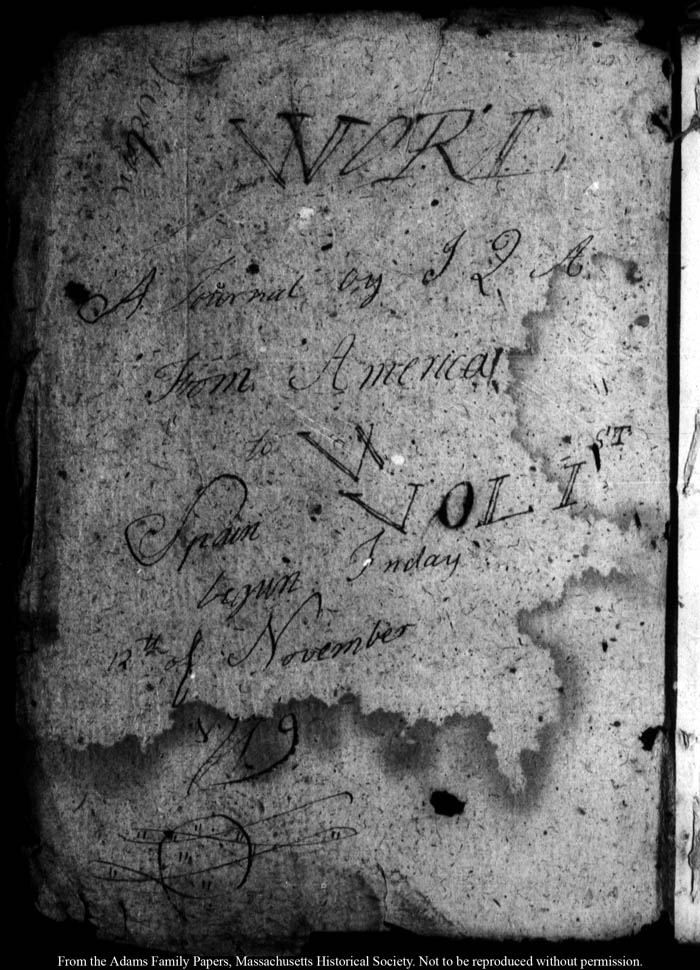 A Journal by J Q A
From America
to V
VOL I ST
Spain
begun Friday
12th of November
1779
From the Adams Family Papers, Massachusetts Historical Society. Not to be reproduced without permission.